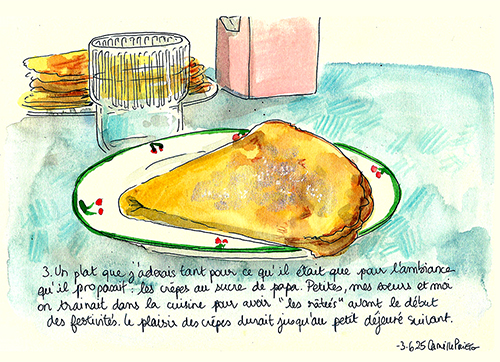 3. Un plat que j'adorais tant pour ce qu'il était que pour l'ambiance
qu'il proposait : les crêpes au sucre de papa. Petites, mes soeurs et moi
on trainait dans la cuisine pour avoir "les ratées" avant le début
des festivités. Le plaisir des crêpes durait jusqu'au petit déjeuné suivant.
-3.6.25 Camille